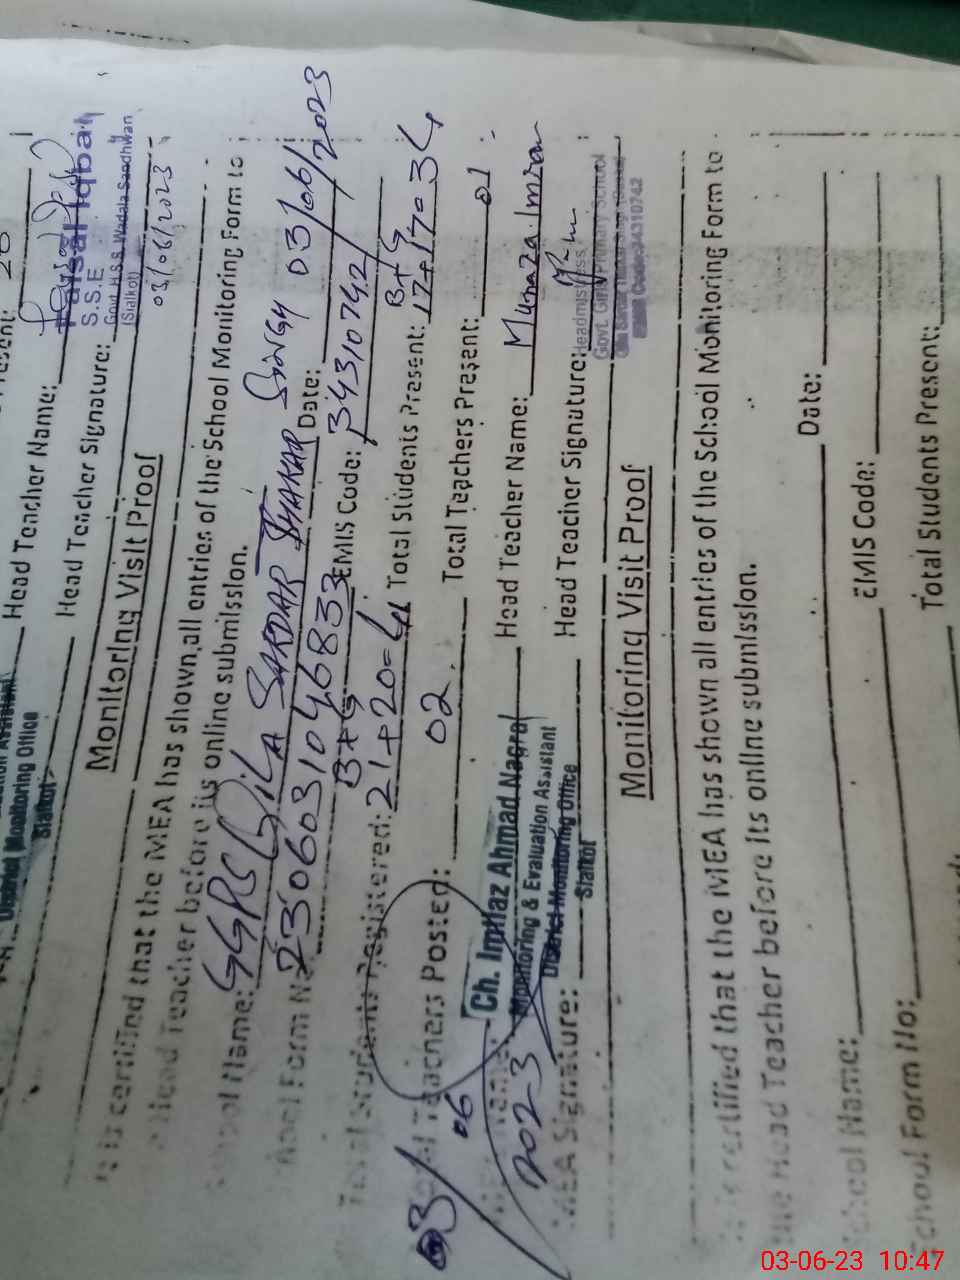 Head Teacher Name:
Faisal Iqbal
S.S.E
Govt. H.S.S. Wadala Sandhwan
(Sialkot)
Head Teacher Signature:
03/06/2023
District Monitoring Office
Sialkot
Monitoring Visit Proof
is certified that the MEA has shown all entries of the School Monitoring Form to
Head Teacher before its online submission.
School Name: GGPS QILA SARDAR JHAKAR SINGH Date: 03/06/2023
School Form No: 2306031046833 EMIS Code: 34310742
B+G B+G
Total Students Registered: 21+20=41 Total Students Present: 17+17=34
Total Teachers Posted: 02 Total Teachers Present: 01
Ch. Imtiaz Ahmad Nagra
Monitoring & Evaluation Assistant
District Monitoring Office
Sialkot
Head Teacher Name: Munaza Imran
MEA Signature: Head Teacher Signature:
Headmistress
Govt. Girls Primary School
34310742
03/06
2023
Monitoring Visit Proof
certified that the MEA has shown all entries of the School Monitoring Form to
the Head Teacher before its online submission.
School Name: Date:
School Form No: EMIS Code:
Total Students Present:
03-06-23 10:47